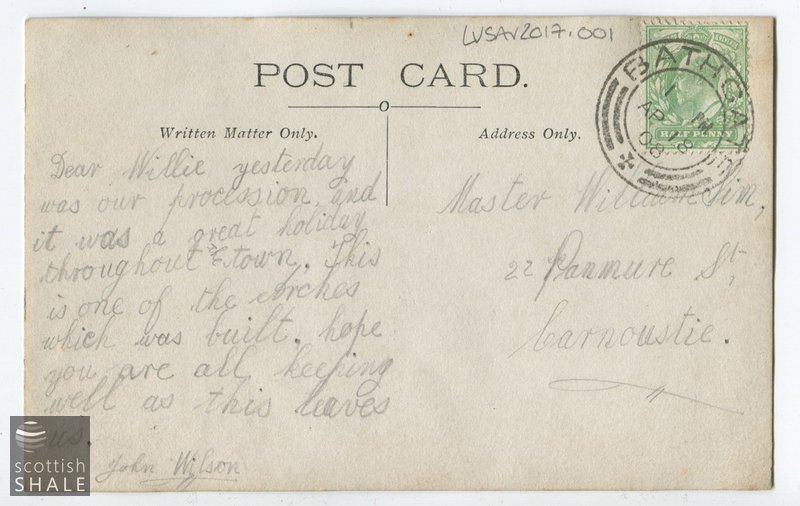 LVSAV2017.001
POST CARD.
Written Matter Only.
Address Only.
HALF PENNY
BATHGATE
AP 18
08
Dear Willie yesterday
was our procession and
it was a great holiday
throughout town. This
is one of the arches
which was built. hope
you are all keeping
well as this leaves
us.
John Wilson
Master William Sim,
22 Panmure St,
Carnoustie.
scottish
SHALE